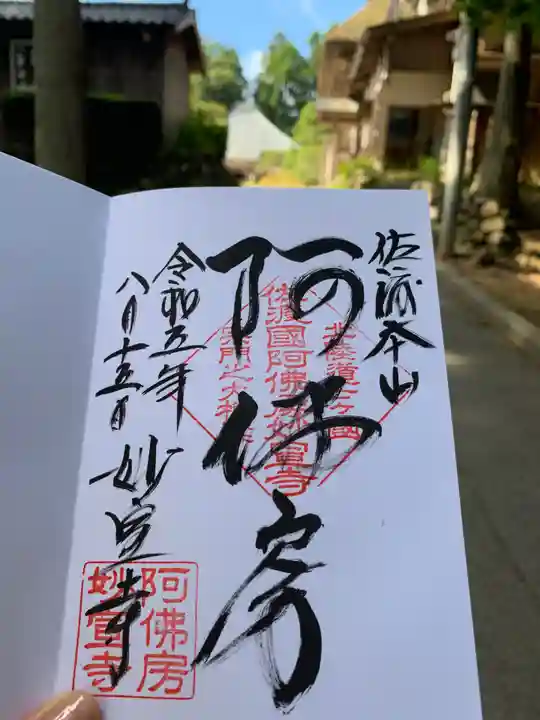 佐渡本山
阿佛房
北陸道七ヶ國
佐渡國阿佛房妙宣寺
法門之大棟梁
令和五年
八月十五日
妙宣寺
阿佛房
妙宣寺